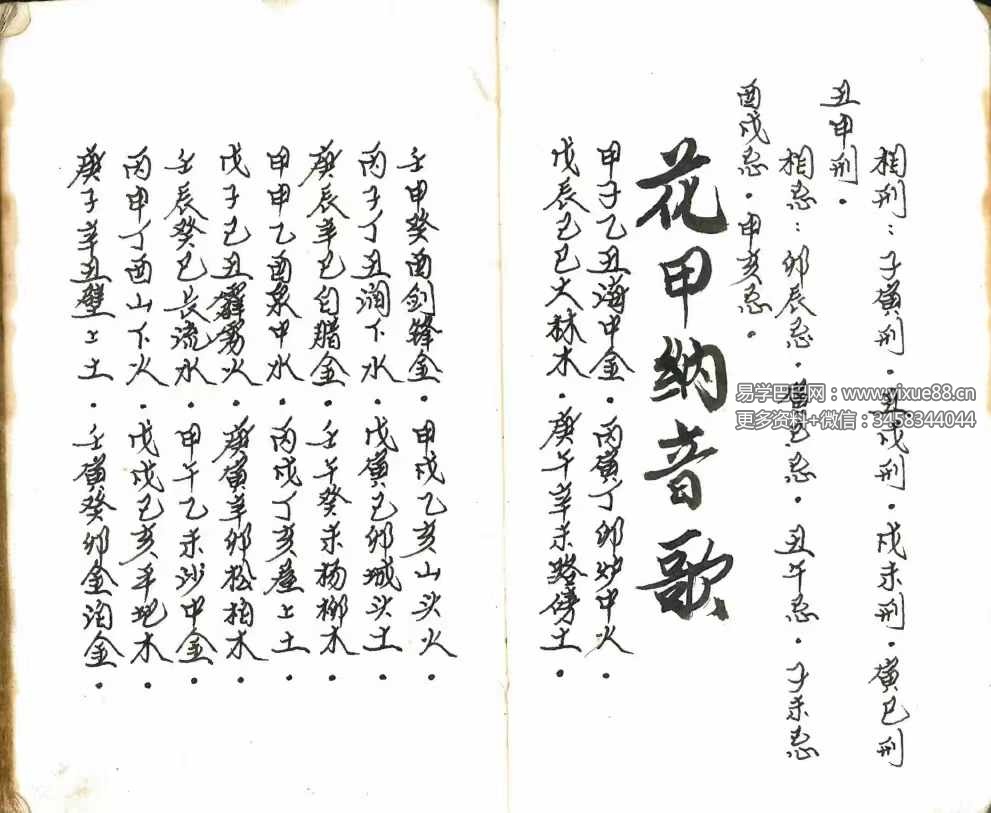 相刑：子寅刑·丑戌刑·戌未刑·寅巳刑
丑申刑·
相忌：卯辰忌·寅巳忌·丑午忌·子未忌
酉戌忌·申亥忌·
花甲纳音歌
甲子乙丑海中金·丙寅丁卯炉中火·
戊辰己巳大林木·庚午辛未路傍土·
壬申癸酉剑锋金·甲戌乙亥山头火·
丙子丁丑涧下水·戊寅己卯城头土·
庚辰辛巳白腊金·壬午癸未杨柳木·
甲申乙酉泉中水·丙戌丁亥屋上土·
戊子己丑霹雳火·庚寅辛卯松柏木·
壬辰癸巳长流水·甲午乙未沙中金·
丙申丁酉山下火·戊戌己亥平地木·
庚子辛丑壁上土·壬寅癸卯金泊金·
易学巴巴网：www.yixue88.cn
更多资料+微信：3458344044